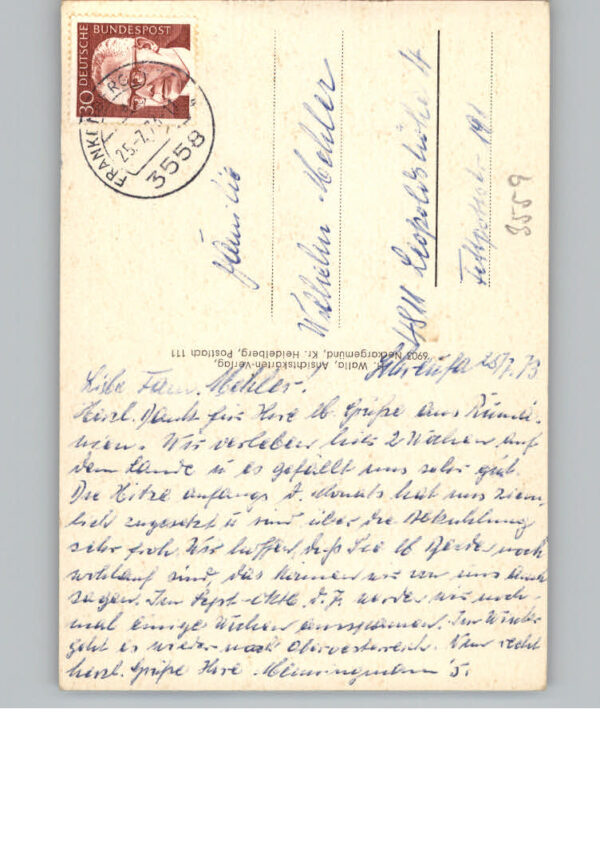 30 DEUTSCHE BUNDESPOST
FRANKENBERG
25.-7.73
3558
Familie
Wilhelm Mehler
4811 Leopoldshöhe
191
3559
Walla, Ansichtskarten-Verlag,
6903 Neckargemünd, Kr. Heidelberg, Postfach 111
25/7.73
Liebe Fam. Mehler!
Herzl. Dank für Ihre lb. Grüße aus Rumä-
nien. Wir verleben hier 2 Wochen auf
dem Lande u es gefällt uns sehr gut.
Die Hitze anfangs d. Monats hat uns ziem-
lich zugesetzt u sind über die Abkühlung
sehr froh. Wir hoffen, daß Sie lb Beide noch
wohlauf sind, das können wir von uns auch
sagen. Im Sept-Oktb. d. J. werden wir noch-
mal einige Wochen ausspannen. Im Winter
geht es wieder nach Oberösterreich. Nun recht
herzl. Grüße Ihre